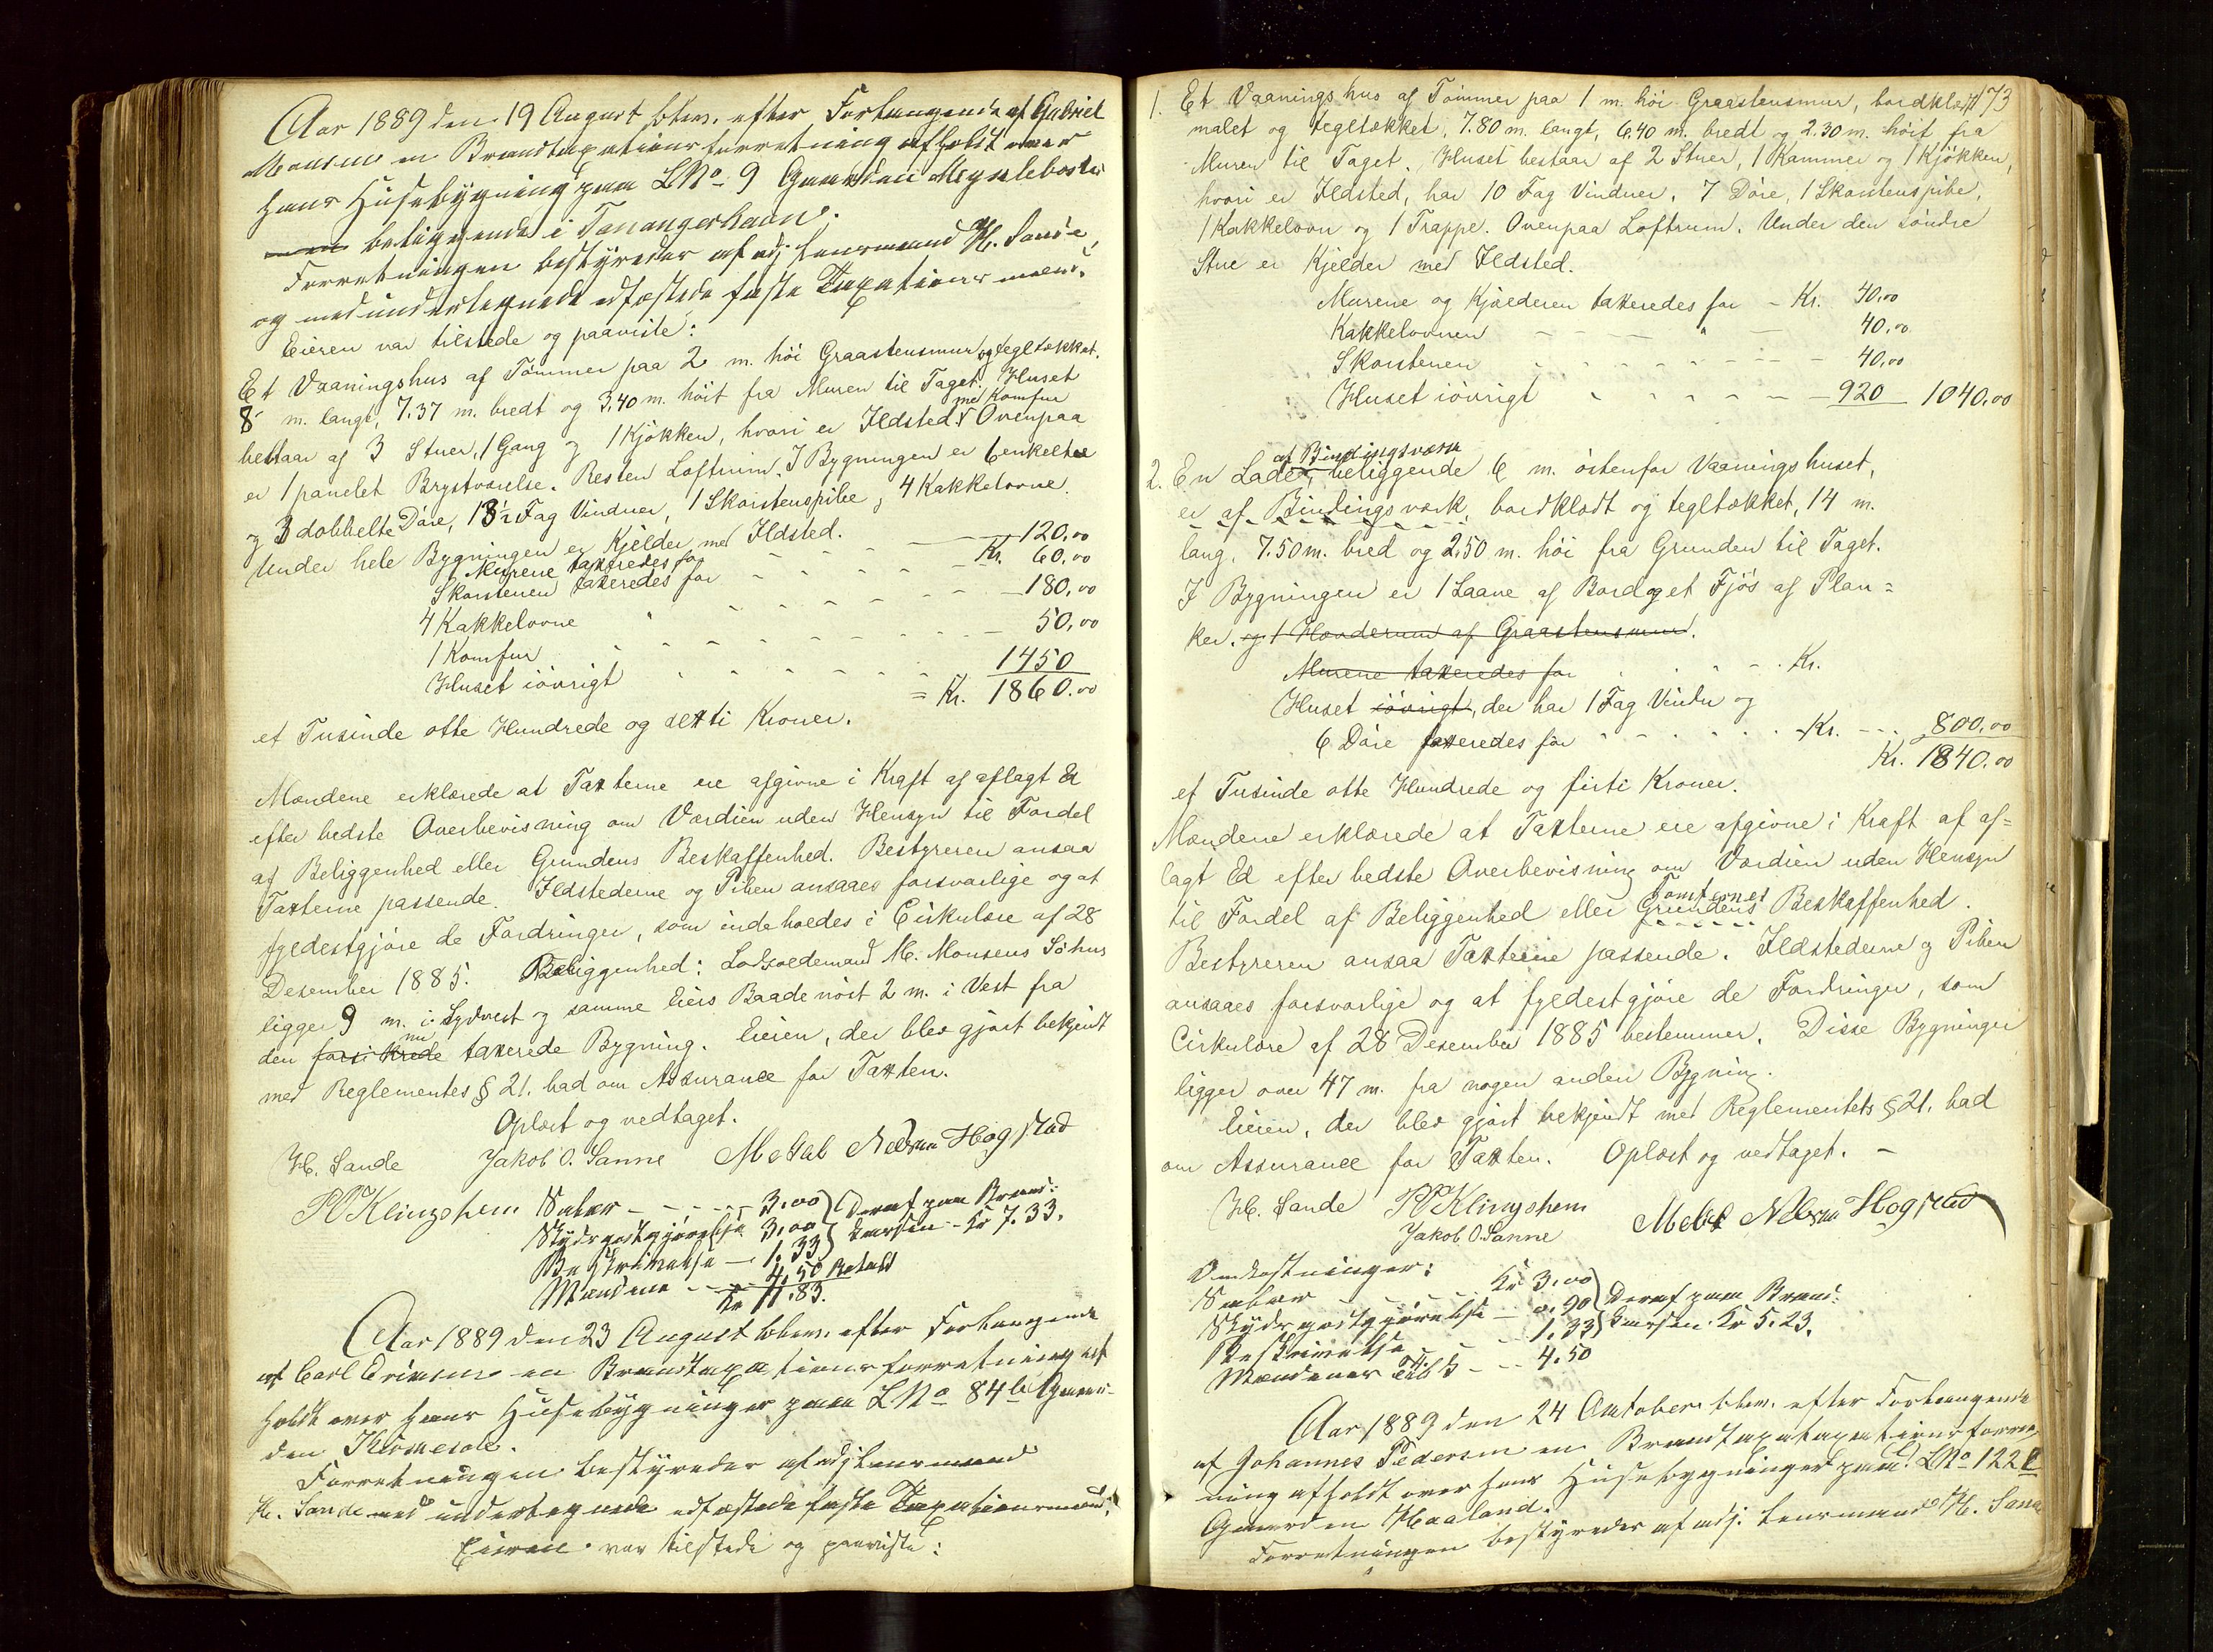 Aar 1889 den 19 August blev. efter Forlangende af Gabriel
Monsen en Brandtaxationsforretning afholdt over
hans Husebygning paa LNo 9 Gaarden Myglebostad
beliggende i Tanangerhavn.
Forretningen bestyredes af adj. Lensmand H. Sande,
og med undertegnede edfæstede faste Taxationsmænd.
Eieren var tilstede og paaviste:
Et Vaaningshus af Tømmer paa 2 m. höi Graastensmur og tegltækket.
8 m. langt, 7.37 m. bredt og 3,40 m. höit fra Muren til Taget. Huset
bestaar af 3 Stuer, 1 Gang og 1 Kjökken, hvori er Ildsted med Komfur Ovenpaa
er 1 panelet Brystværelse. Resten Loftrum. I Bygningen er 6 enkelte
og 3 dobbelte Döre, 13½ Fag Vinduer, 1 Skorstenspibe, 4 Kakkelovne.
Under hele Bygningen er Kjelder med Ildsted.
Murene taxeredes for - - - 120,00
Skorstenen taxeredes for - - - Kr. 60,00
4 Kakkelovne " - - - 180,00
1 Komfur - - - 50,00
Huset iövrigt - - - 1450
= Kr. 1860.00
et Tusinde otte Hundrede og sexti Kroner.
Mændene erklærede at Taxterne ere afgivne i Kraft af aflagt Ed
efter bedste Overbevisning om Værdien uden Hensyn til Fordel
af Beliggenhed eller Grundens Beskaffenhed. Bestyreren ansaa
Taxterne passende. Ildstederne og Piben ansaaes forsvarlige og at
fyldestgjöre de Fordringer, som indeholdes i Cirkulære af 28
Desember 1885. Beliggenhed: Lodsoldemand M. Monsens Söhus
ligger 9 m. i Sydvest og samme Eiers Baadenöst 2 m. i Vest fra
den forsikrede nu taxerede Bygning. Eieren, der blev gjort bekjendt
med Reglementes § 21. bad om Assurance for Taxten.
Oplæst og vedtaget.
H. Sande Jakob O. Sanne Nelsen Hogstad
P Klingshem Salær - - - 3.00 Deraf paa Brand-
Skydsgodtgjörelse 3,00 kassen - Kr 7.33.
Beskrivelse - 1.33
Mændene - - 4.50 Betalt
Kr 11.83.
Aar 1889 den 23 August blev. efter Forlangende
af Carl Eriksen en Brandtaxationsforretning af-
holdt over hans Husebygninger paa LNo 84b Gaar-
den
Forretningen bestyredes af adj. Lensmand
H. Sande med undertegnede edfæstede faste Taxationsmænd.
Eieren var tilstede og paaviste:
173
1. Et Vaaningshus af Tömmer paa 1 m. höi Graastensmur, bordklædt
malet og tegltækket, 7.80 m. langt, 6.40 m. bredt og 2.30 m. höit fra
Muren til Taget. Huset bestaar af 2 Stuer, 1 Kammer og 1 Kjökken,
hvori er Ildsted, har 10 Fag Vinduer, 7 Döre, 1 Skorstenspibe,
1 Kakkelovn og 1 Trappe. Ovenpaa Loftrum. Under den söndre
Stue er Kjelder med Ildsted.
Murene og Kjælderen taxeredes for - Kr. 40,00
Kakkelovnen - - - " - 40,00
Skorstenen - - - 40,00
Huset iövrigt - - - 920 1040,00
af Bindingsværk
2. En Lade, beliggende 6 m. östenfor Vaaningshuset,
er af Bindingsværk, bordklædt og tegltækket, 14 m.
lang, 7.50 m. bred og 2,50 m. höi fra Grunden til Taget.
I Bygningen er 1 Laave af Bord og et Fjös af Plan=
ker. og 1 Hövderum af Graastensmur.
Murene taxeredes for - - - Kr.
Huset iövrigt, der har 1 Fag Vindu og
6 Döre taxeredes for - - - Kr. - - - 800,00
Kr. 1840.00
et Tusinde otte Hundrede og firti Kroner.
Mændene erklærede at Taxterne ere afgivne i Kraft af af=
lagt Ed efter bedste Overbevisning om Værdien uden Hensyn
til Fordel af Beliggenhed eller Grundens Tomternes Beskaffenhed.
Bestyreren ansaa Taxterne passende. Ildstederne og Piben
ansaaes forsvarlige og at fyldestgjöre de Fordringer, som
Cirkulære af 28 Desember 1885 bestemmer. Disse Bygninger
ligger over 47 m. fra nogen anden Bygning.
Eieren, der blev gjort bekjendt med Reglementets § 21. bad
om Assurance for Taxten. Oplæst og vedtaget. -
H. Sande P Klingshem
Jakob O. Sanne Nelsen Hogstad
Omkostninger:
Salær - - - Kr 3,00 Deraf paa Brand-
Skydsgodtgjörelse - 0.90 kassen. Kr 5.23.
Beskrivelse - - 1.33
Mændenes - - 4.50
Aar 1889 den 24 Oktober blev. efter Forlangende
af Johannes Pedersen en Brandtaxataxationsforret-
ning afholdt over hans Husebygninger paa LNo 122
Gaarden Haaland.
Forretningen bestyredes af adj. Lensmand H. Sande